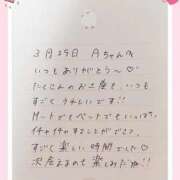 3月29日 円ちゃん
いつもありがとう〜♡
たくさんのお土産も、いつも
すごくうれしいです!!
マットでもベッドでもいっぱい
イチャイチャすることができて、
すごく楽しい時間でした♡
次会えるのも楽しみだね!!